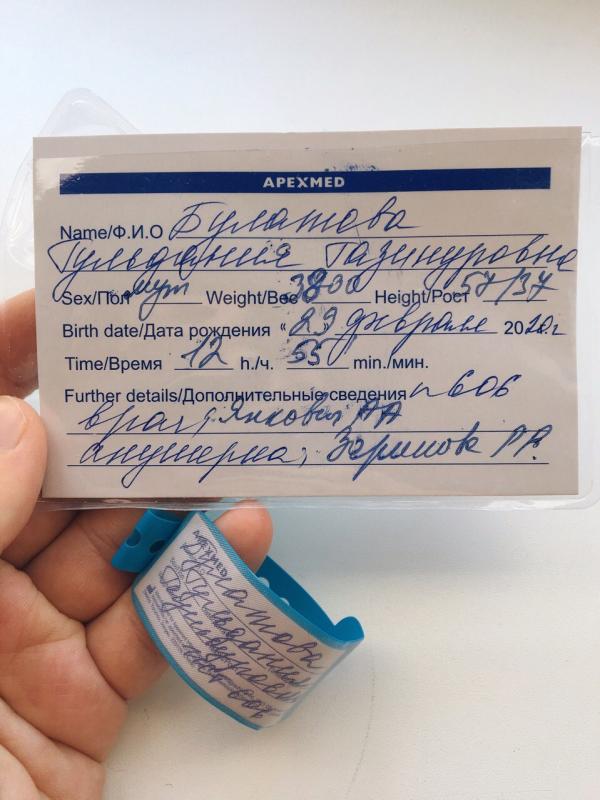 APEXMED
Name/Ф.И.О Булатова
Гульфания Газинуровна
Sex/Пол муж Weight/Вес 3800 Height/Рост 57/37
Birth date/Дата рождения "29" февраля 2020г
Time/Время 12 h./ч. 55 min./мин.
Further details/Дополнительные сведения п606
врач; Янковая АА
акушерка;
APEXMED
Булатова